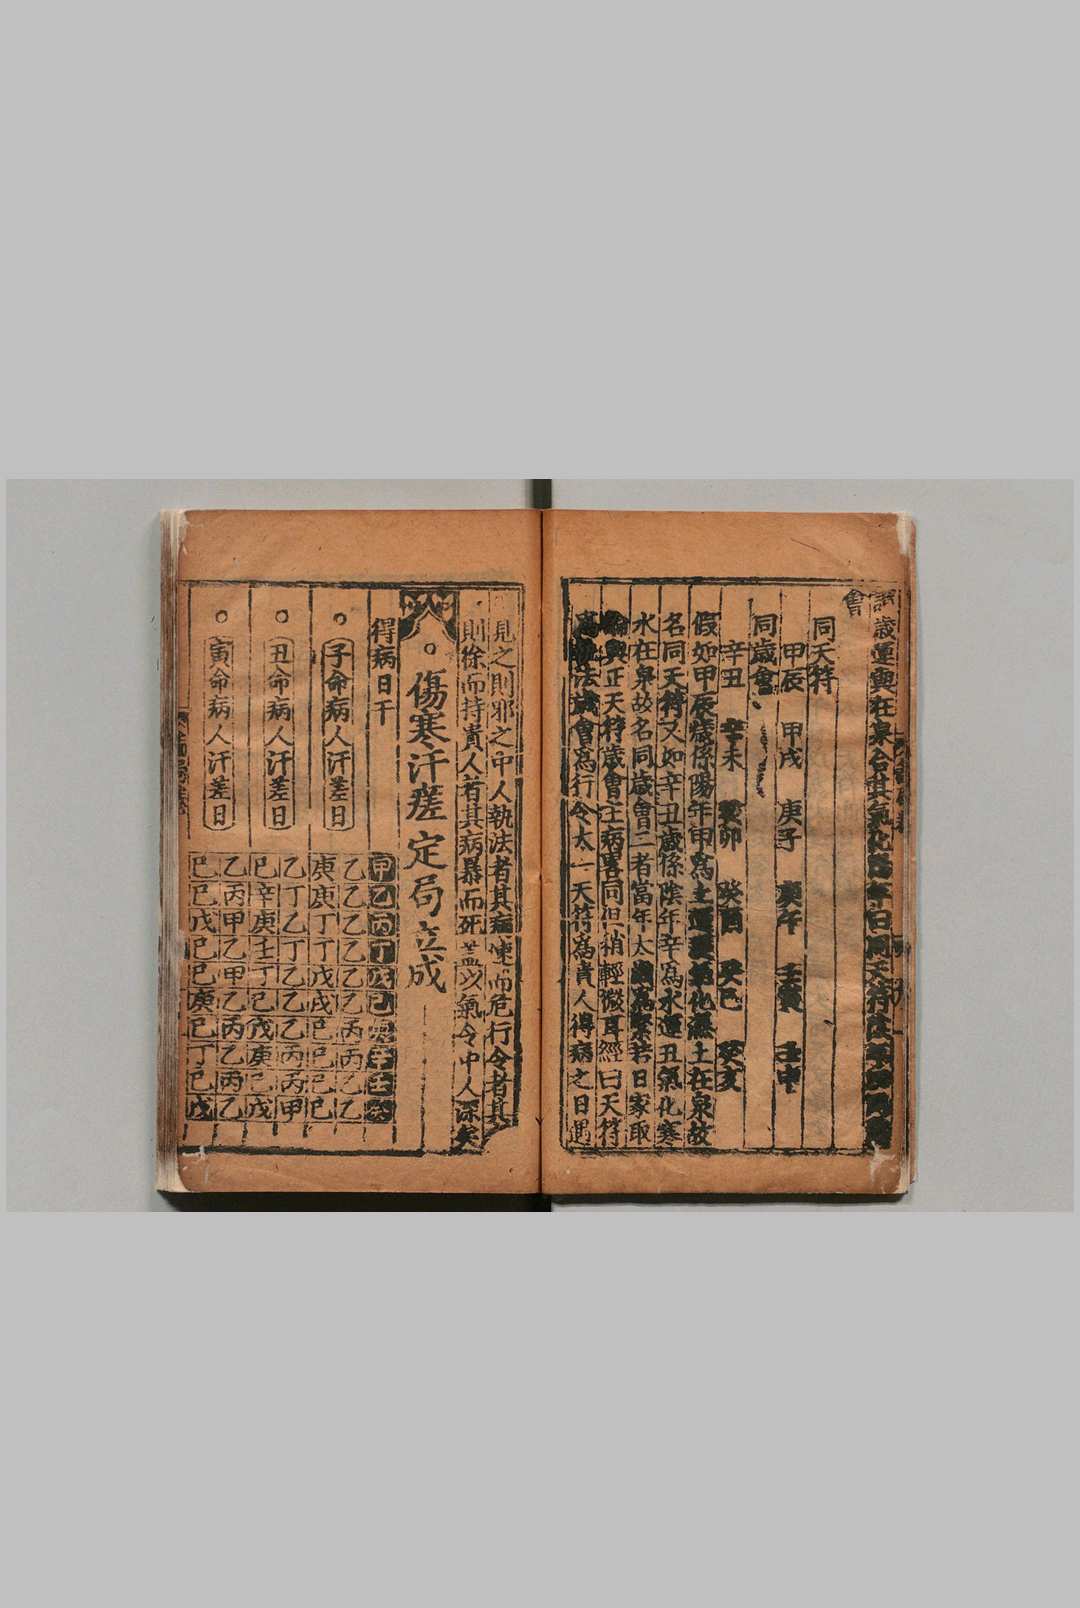 歲運與在泉合其氣化陽年曰同天符陰年曰同歲
會
同天符
甲辰 甲戌 庚子 庚午 壬寅 壬申
同歲會
辛丑 辛未 癸卯 癸酉 癸巳 癸亥
假如甲辰歲係陽年甲為土運
化濕土在泉故
名同天符又如辛丑歲係陰年辛為水運丑氣化寒
水在泉故名同歲會二者當年太
為緊若日家取
論與正天符歲會主病畧同但稍輕微耳經曰天符
為執法歲會為行令太一天符為貴人得病之日遇
見之則邪之中人執法者其病速而危行令者其
則徐而持貴人者其病暴而死盖以氣令中人深矣
傷寒汗瘥定局立成
得病日干 甲乙丙丁戊己庚辛壬癸
子命病人汗差日
乙乙乙乙乙乙丙丙乙乙
庚庚丁丁戊戊巳巳巳巳
丑命病人汗差日
乙丁乙丁乙乙乙丙丙甲
巳辛庚壬丁巳戊庚巳戊
寅命病人汗差日
乙丙甲乙甲乙丙乙丙乙
巳巳戊巳巳庚巳丁巳戊